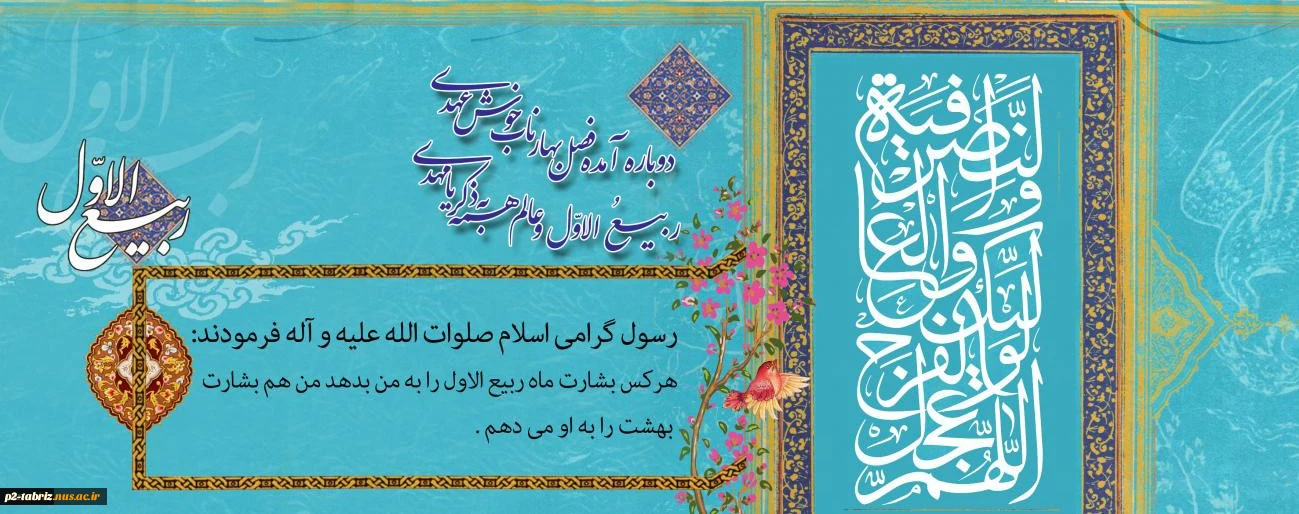 اللّهم عجّل لولیک الفرج والعافیة والنّصر
دوباره آمده فصل بهار ناب خوش عهدی
ربیعُ الاوّل و عالم همه به ذکر یا مهدی
ربیع الاوّل
رسول گرامی اسلام صلوات الله علیه و آله فرمودند:
هرکس بشارت ماه ربیع الاول را به من بدهد من هم بشارت
بهشت را به او می دهم .
ربیع الاوّل
p2-tabriz.nus.ac.ir